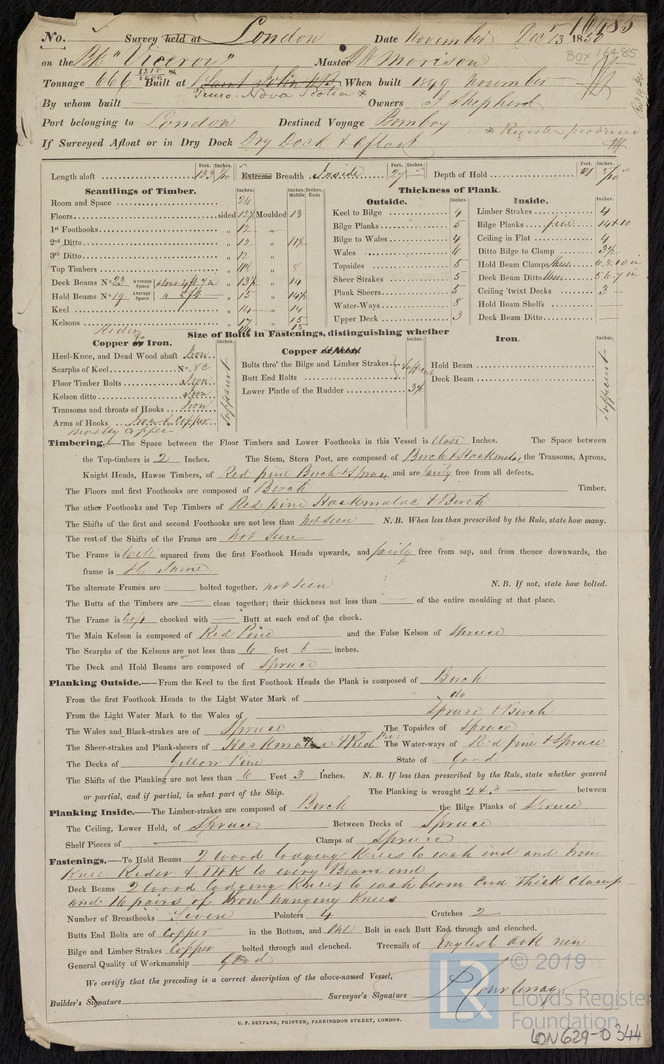 No. Survey held at London Date November Dec 16485
on the Bk "Viceroy" Master Morison Box 16485
Tonnage 666 Built at Saint John NB When built 1849 November
Truro Nova Scotia
By whom built Owners T Shepherd
Port belonging to London Destined Voyage Bombay
If Surveyed Afloat or in Dry Dock Dry Dock & Afloat
Length aloft Extreme Breadth Inside 27 Depth of Hold 21
Scantlings of Timber.
Room and Space 26
Floors sided 12½ Moulded 13
1st Foothooks 12
2nd Ditto 12
3rd Ditto 12
Top Timbers
Deck Beams No 23 Average Space 14
Hold Beams No 19 Average Space 5 ft 15
Keel 14 14
Kelsons 17 15
Thickness of Plank.
Outside.
Keel to Bilge 4
Bilge Planks 5
Bilge to Wales 4
Wales 6
Topsides 5
Sheer Strakes 5
Plank Sheers 5
Water-Ways 8
Upper Deck 3
Inside.
Limber Strakes 4
Bilge Planks five
Ceiling in Flat 4
Ditto Bilge to Clamp 3½
Hold Beam Clamps
Deck Beam Ditto 5 6 7 in
Ceiling 'twixt Decks 3
Hold Beam Shelfs
Deck Beam Ditto
Size of Bolts in Fastenings, distinguishing whether
Copper or Iron.
Heel-Knee, and Dead Wood abaft Iron
Scarphs of Keel No. 8 C
Floor Timber Bolts Iron
Kelson ditto Iron
Transoms and throats of Hooks Iron
Arms of Hooks Iron & Copper
Mostly Copper
Sufficient
Copper
Bolts thro' the Bilge and Limber Strakes
Butt End Bolts
Lower Pintle of the Rudder
Iron.
Hold Beam
Deck Beam
Sufficient
Timbering.—The Space between the Floor Timbers and Lower Foothooks in this Vessel is close Inches. The Space between
the Top-timbers is 2 Inches. The Stem, Stern Post, are composed of Birch & Hackmatac, the Transoms, Aprons,
Knight Heads, Hawse Timbers, of Red pine Birch & Spruce and are fairly free from all defects.
The Floors and first Foothooks are composed of Birch Timber.
The other Foothooks and Top Timbers of Red pine Hackmatac & Birch
The Shifts of the first and second Foothooks are not less than not seen N.B. When less than prescribed by the Rule, state how many.
The rest of the Shifts of the Frame are not seen
The Frame is well squared from the first Foothook Heads upwards, and fairly free from sap, and from thence downwards, the
frame is the same
The alternate Frames are bolted together. not seen N.B. If not, state how bolted.
The Butts of the Timbers are close together; their thickness not less than of the entire moulding at that place.
The Frame is chocked with Butt at each end of the chock.
The Main Kelson is composed of Red Pine and the False Kelson of Spruce
The Scarphs of the Kelsons are not less than 6 feet 6 inches.
The Deck and Hold Beams are composed of Spruce
Planking Outside.—From the Keel to the first Foothook Heads the Plank is composed of Birch
From the first Foothook Heads to the Light Water Mark of do
From the Light Water Mark to the Wales of Spruce & Birch
The Wales and Black-strakes are of Spruce The Topsides of Spruce
The Sheer-strakes and Plank-sheers of Hackmatac & Red Pine The Water-ways of Red pine & Spruce
The Decks of Yellow Pine State of Good
The Shifts of the Planking are not less than 6 Feet 3 Inches. N.B. If less than prescribed by the Rule, state whether general
or partial, and if partial, in what part of the Ship. The Planking is wrought 2 & 3 between
Planking Inside.—The Limber-strakes are composed of Birch the Bilge Planks of Spruce
The Ceiling, Lower Hold, of Spruce Between Decks of Spruce
Shelf Pieces of Clamps of Spruce
Fastenings.—To Hold Beams 2 wood lodging Knees to each end and Iron
Knee Rider & to every Beam end
Deck Beams 2 wood lodging Knees to each beam End Thick Clamp
and 16 pairs of Iron hanging Knees
Number of Breasthooks Seven Pointers 4 Crutches 2
Butts End Bolts are of Copper in the Bottom, and Bolt in each Butt End through and clenched.
Bilge and Limber Strakes Copper bolted through and clenched. Treenails of English oak new
General Quality of Workmanship good
We certify that the preceding is a correct description of the above-named Vessel,
Builder's Signature Surveyor's Signature
C. F. SEYFANG, PRINTER, FARRINGDON STREET, LONDON.
© 2019
Lloyd's Register
Foundation
LON629-0344